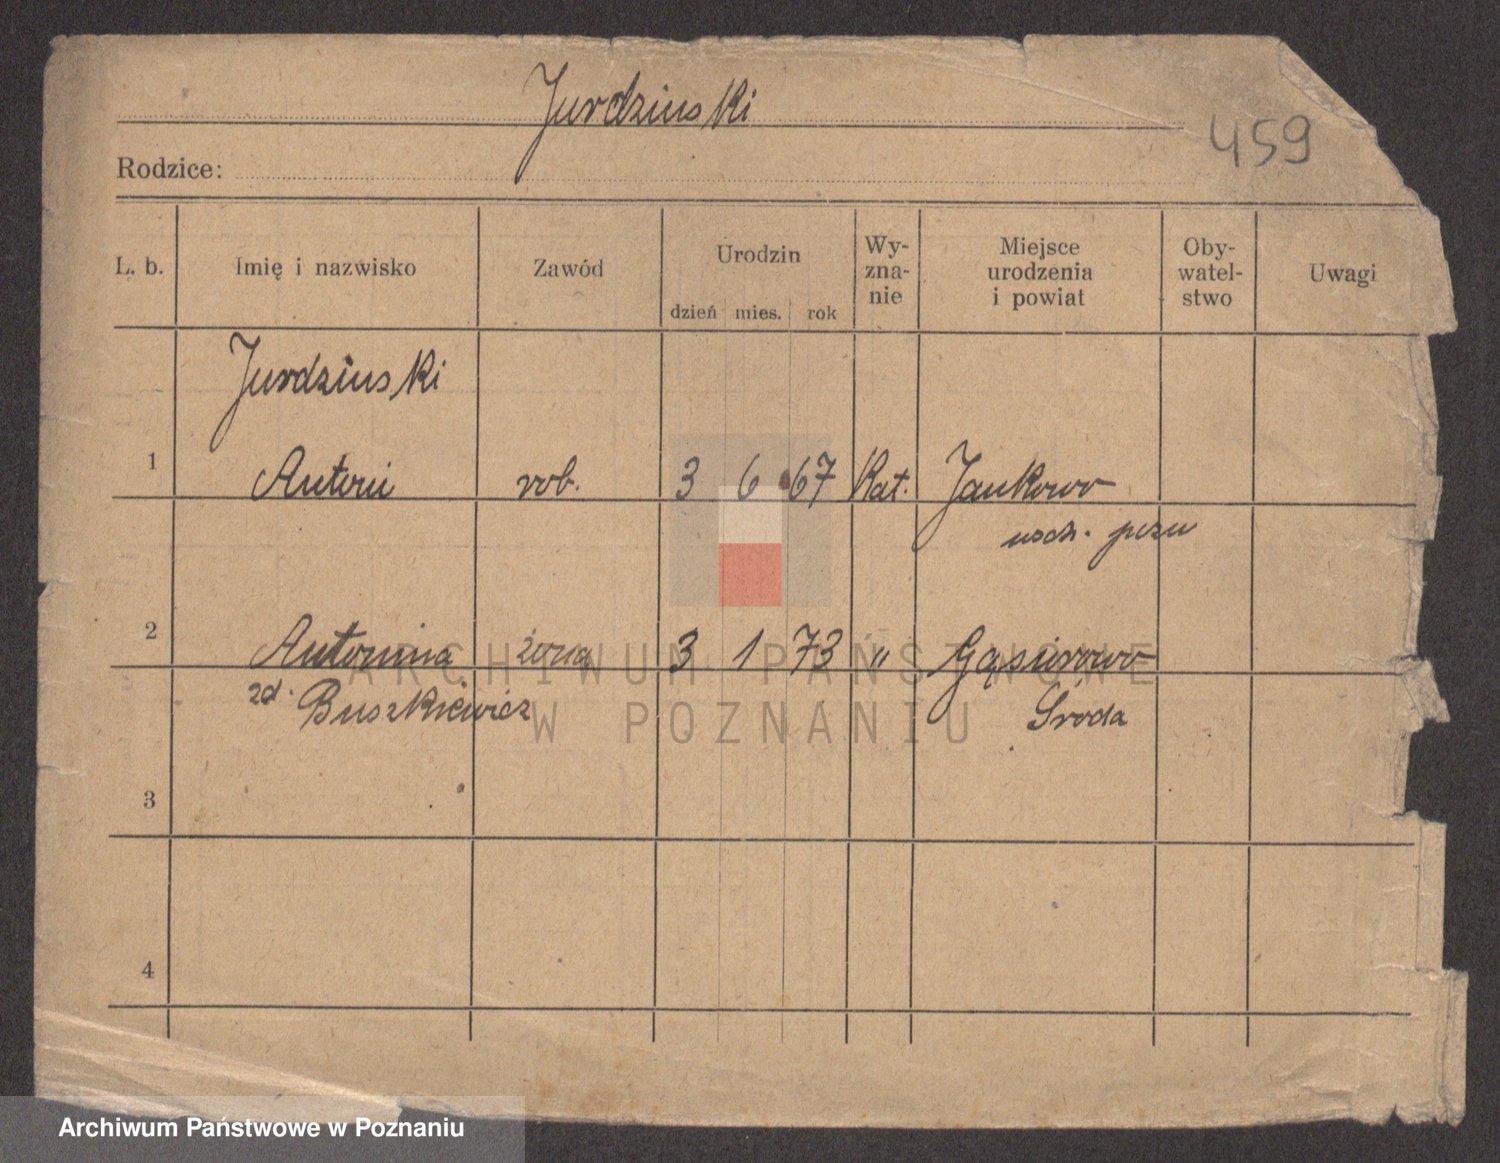 Jurdzinski
459
Rodzice:
L. b. Imię i nazwisko Zawód Urodzin dzień mies. rok Wy-zna-nie Miejsce urodzenia i powiat Oby-watel-stwo Uwagi
Jurdzinski
1 Antoni rob. 3 6 67 Kat. Jankowo
wsch. pozn
2 Antonina żona 3 1 73 " Gąsiorowo
zd. Buszkiewicz Środa
3
4
ARCHIWUM PAŃSTWOWE
W POZNANIU
Archiwum Państwowe w Poznaniu